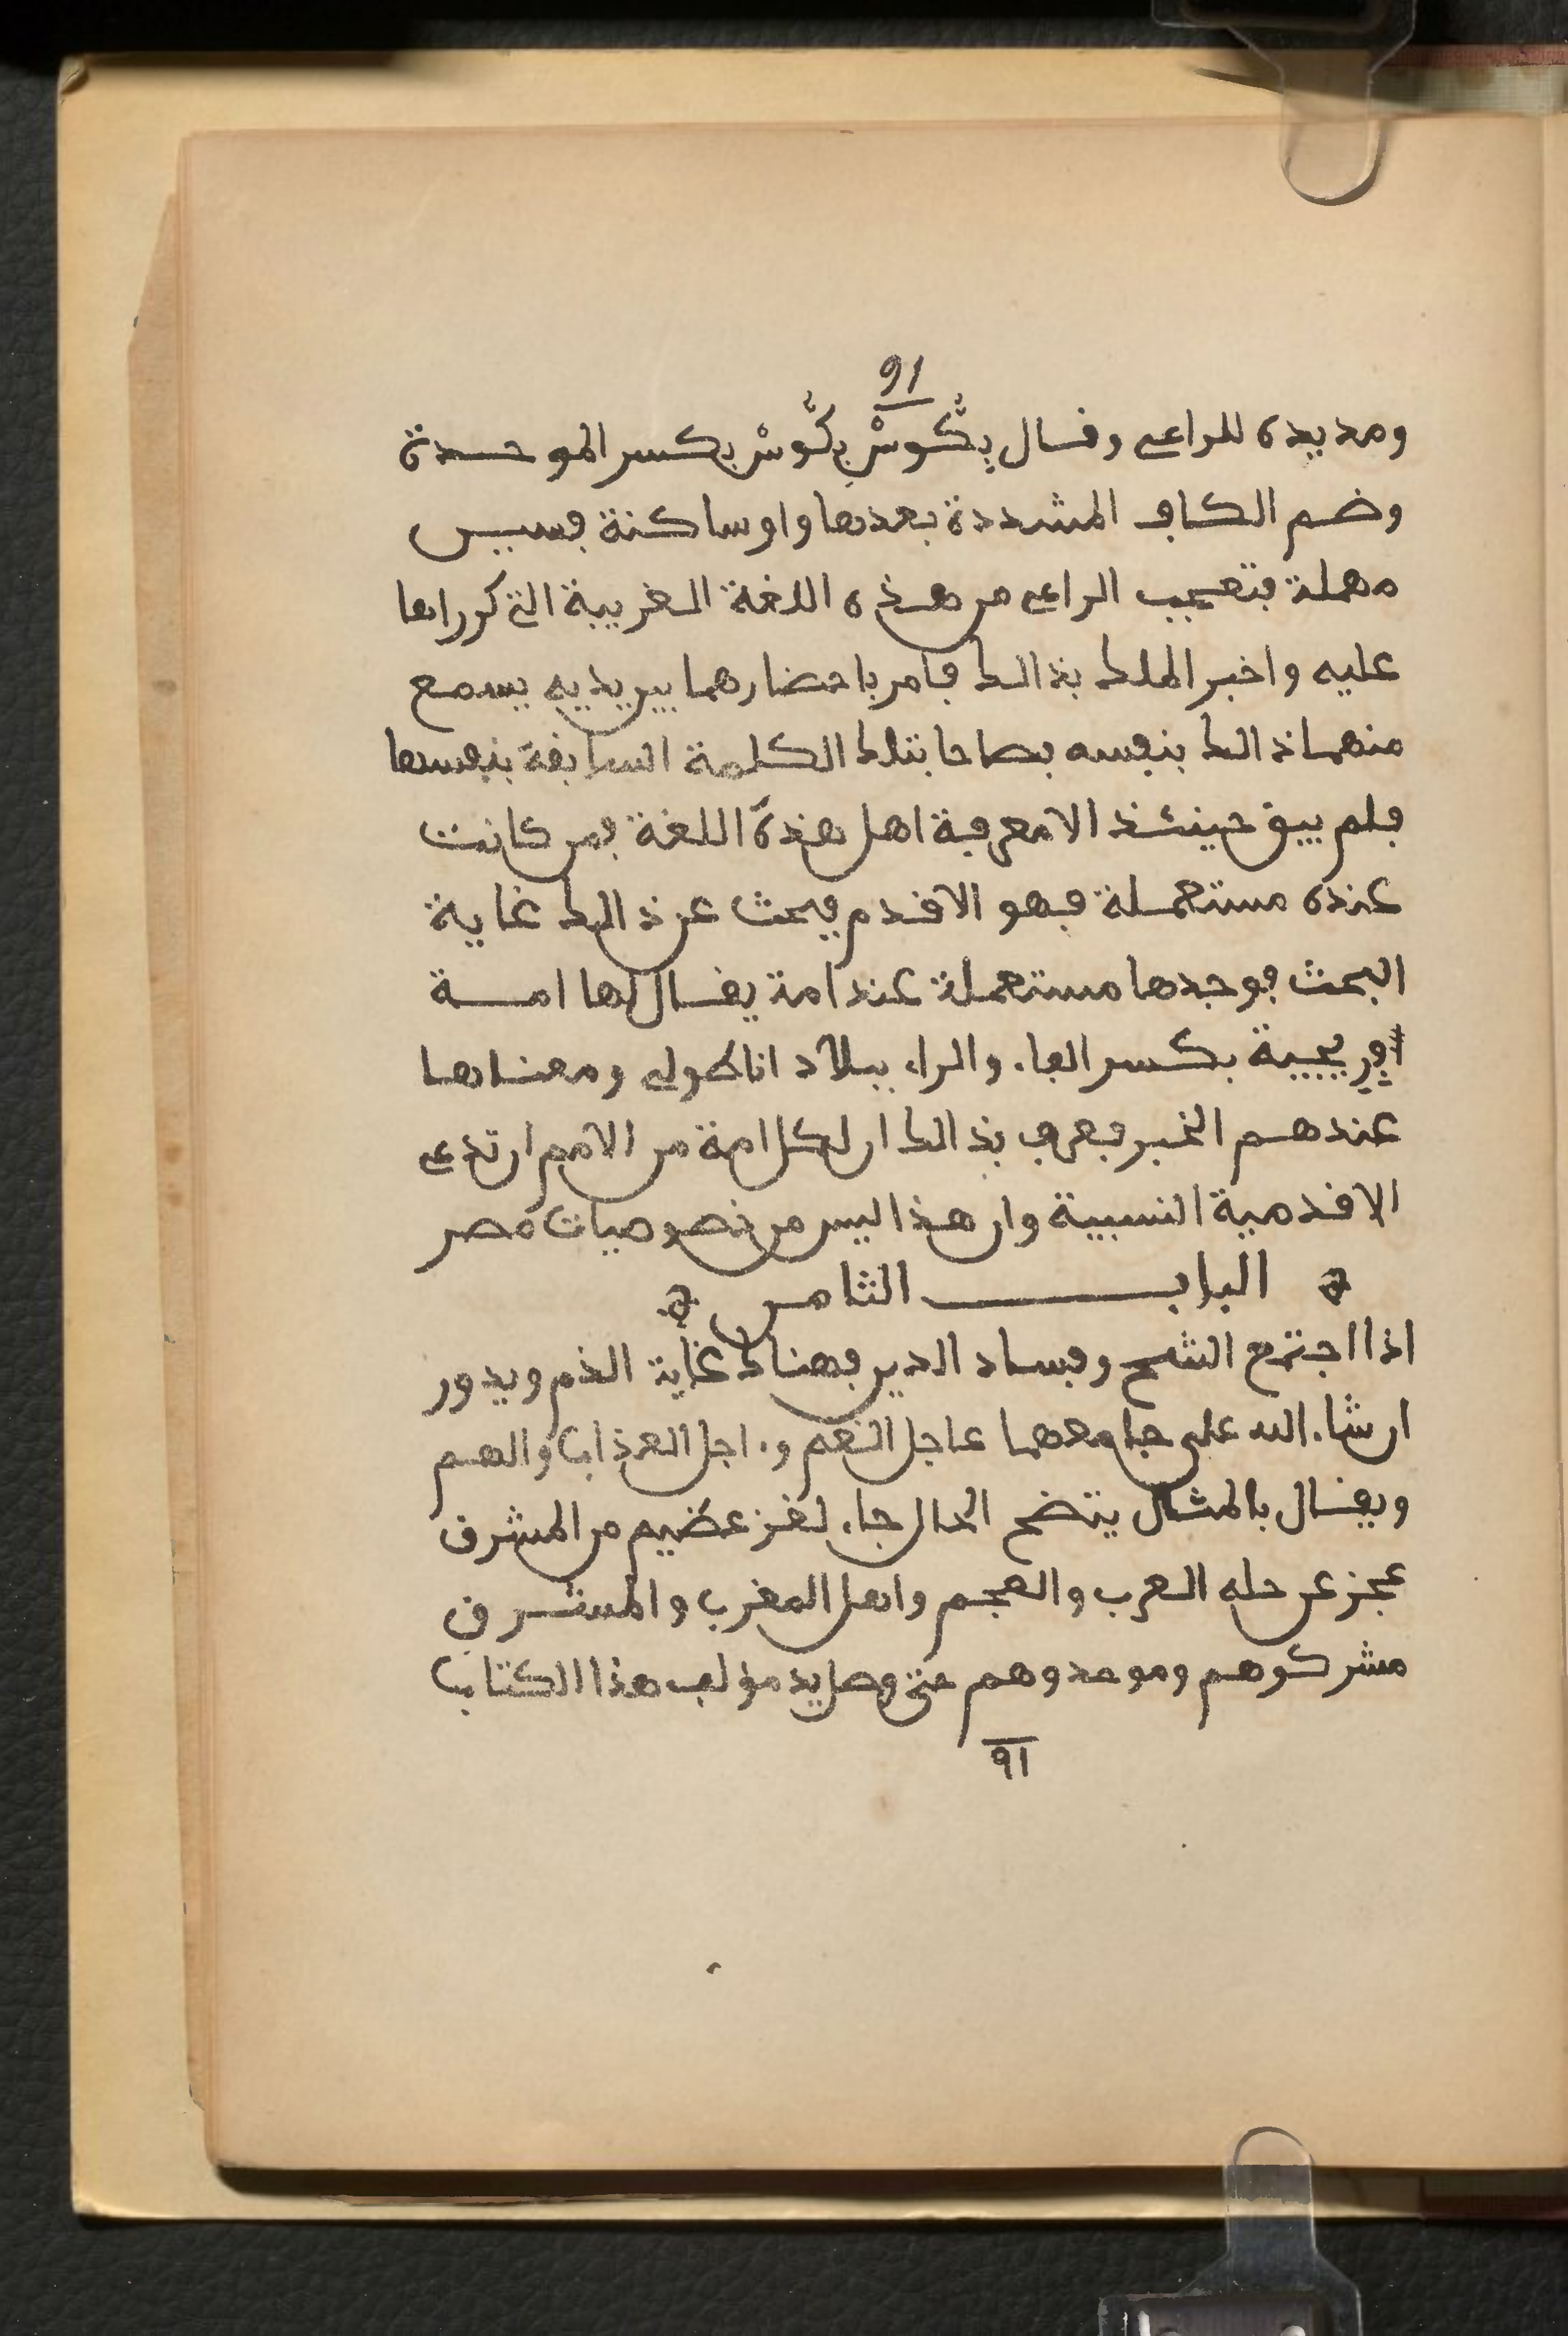 91
ومد يده للراعي وقال بِكُّوسْ بِكُّوسْ بكسر الموحدة
وضم الكاف المشددة بعدها واو ساكنة فسين
مهملة فتعجب الراعي من هذه اللغة الغريبة التي كرراها
عليه واخبر الملك بذالك فامر باحضارهما بين يديه يسمع
منهما ذالك بنفسه فصاحا بتلك الكلمة السابقة بنفسها
فلم يبق حينئذ الا معرفة اهل هذه اللغة فمن كانت
عنده مستعملة فهو الاقدم فبحث عن ذالك غاية
البحث فوجدها مستعملة عند امة يقال لها امة
افريجية بكسر الفاء والراء ببلاد اناطولي ومعناها
عندهم الخبز فعرف بذالك ان لكل امة من الامم ان تدعي
الاقدمية النسبية وان هذا ليس من خصوصيات مصر
الباب الثامن
اذا اجتمع الشح وفساد الدين فهناك غاية الذم ويدور
ان شاء الله على جامعهما عاجل النقم وءاجل العذاب والهم
ويقال بالمثال يتضح الحال جاء لغز عظيم من المشرق
عجز عن حله العرب والعجم واهل المغرب والمشرق
مشركوهم وموحدوهم حتى وصل يد مؤلف هذا الكتاب
91